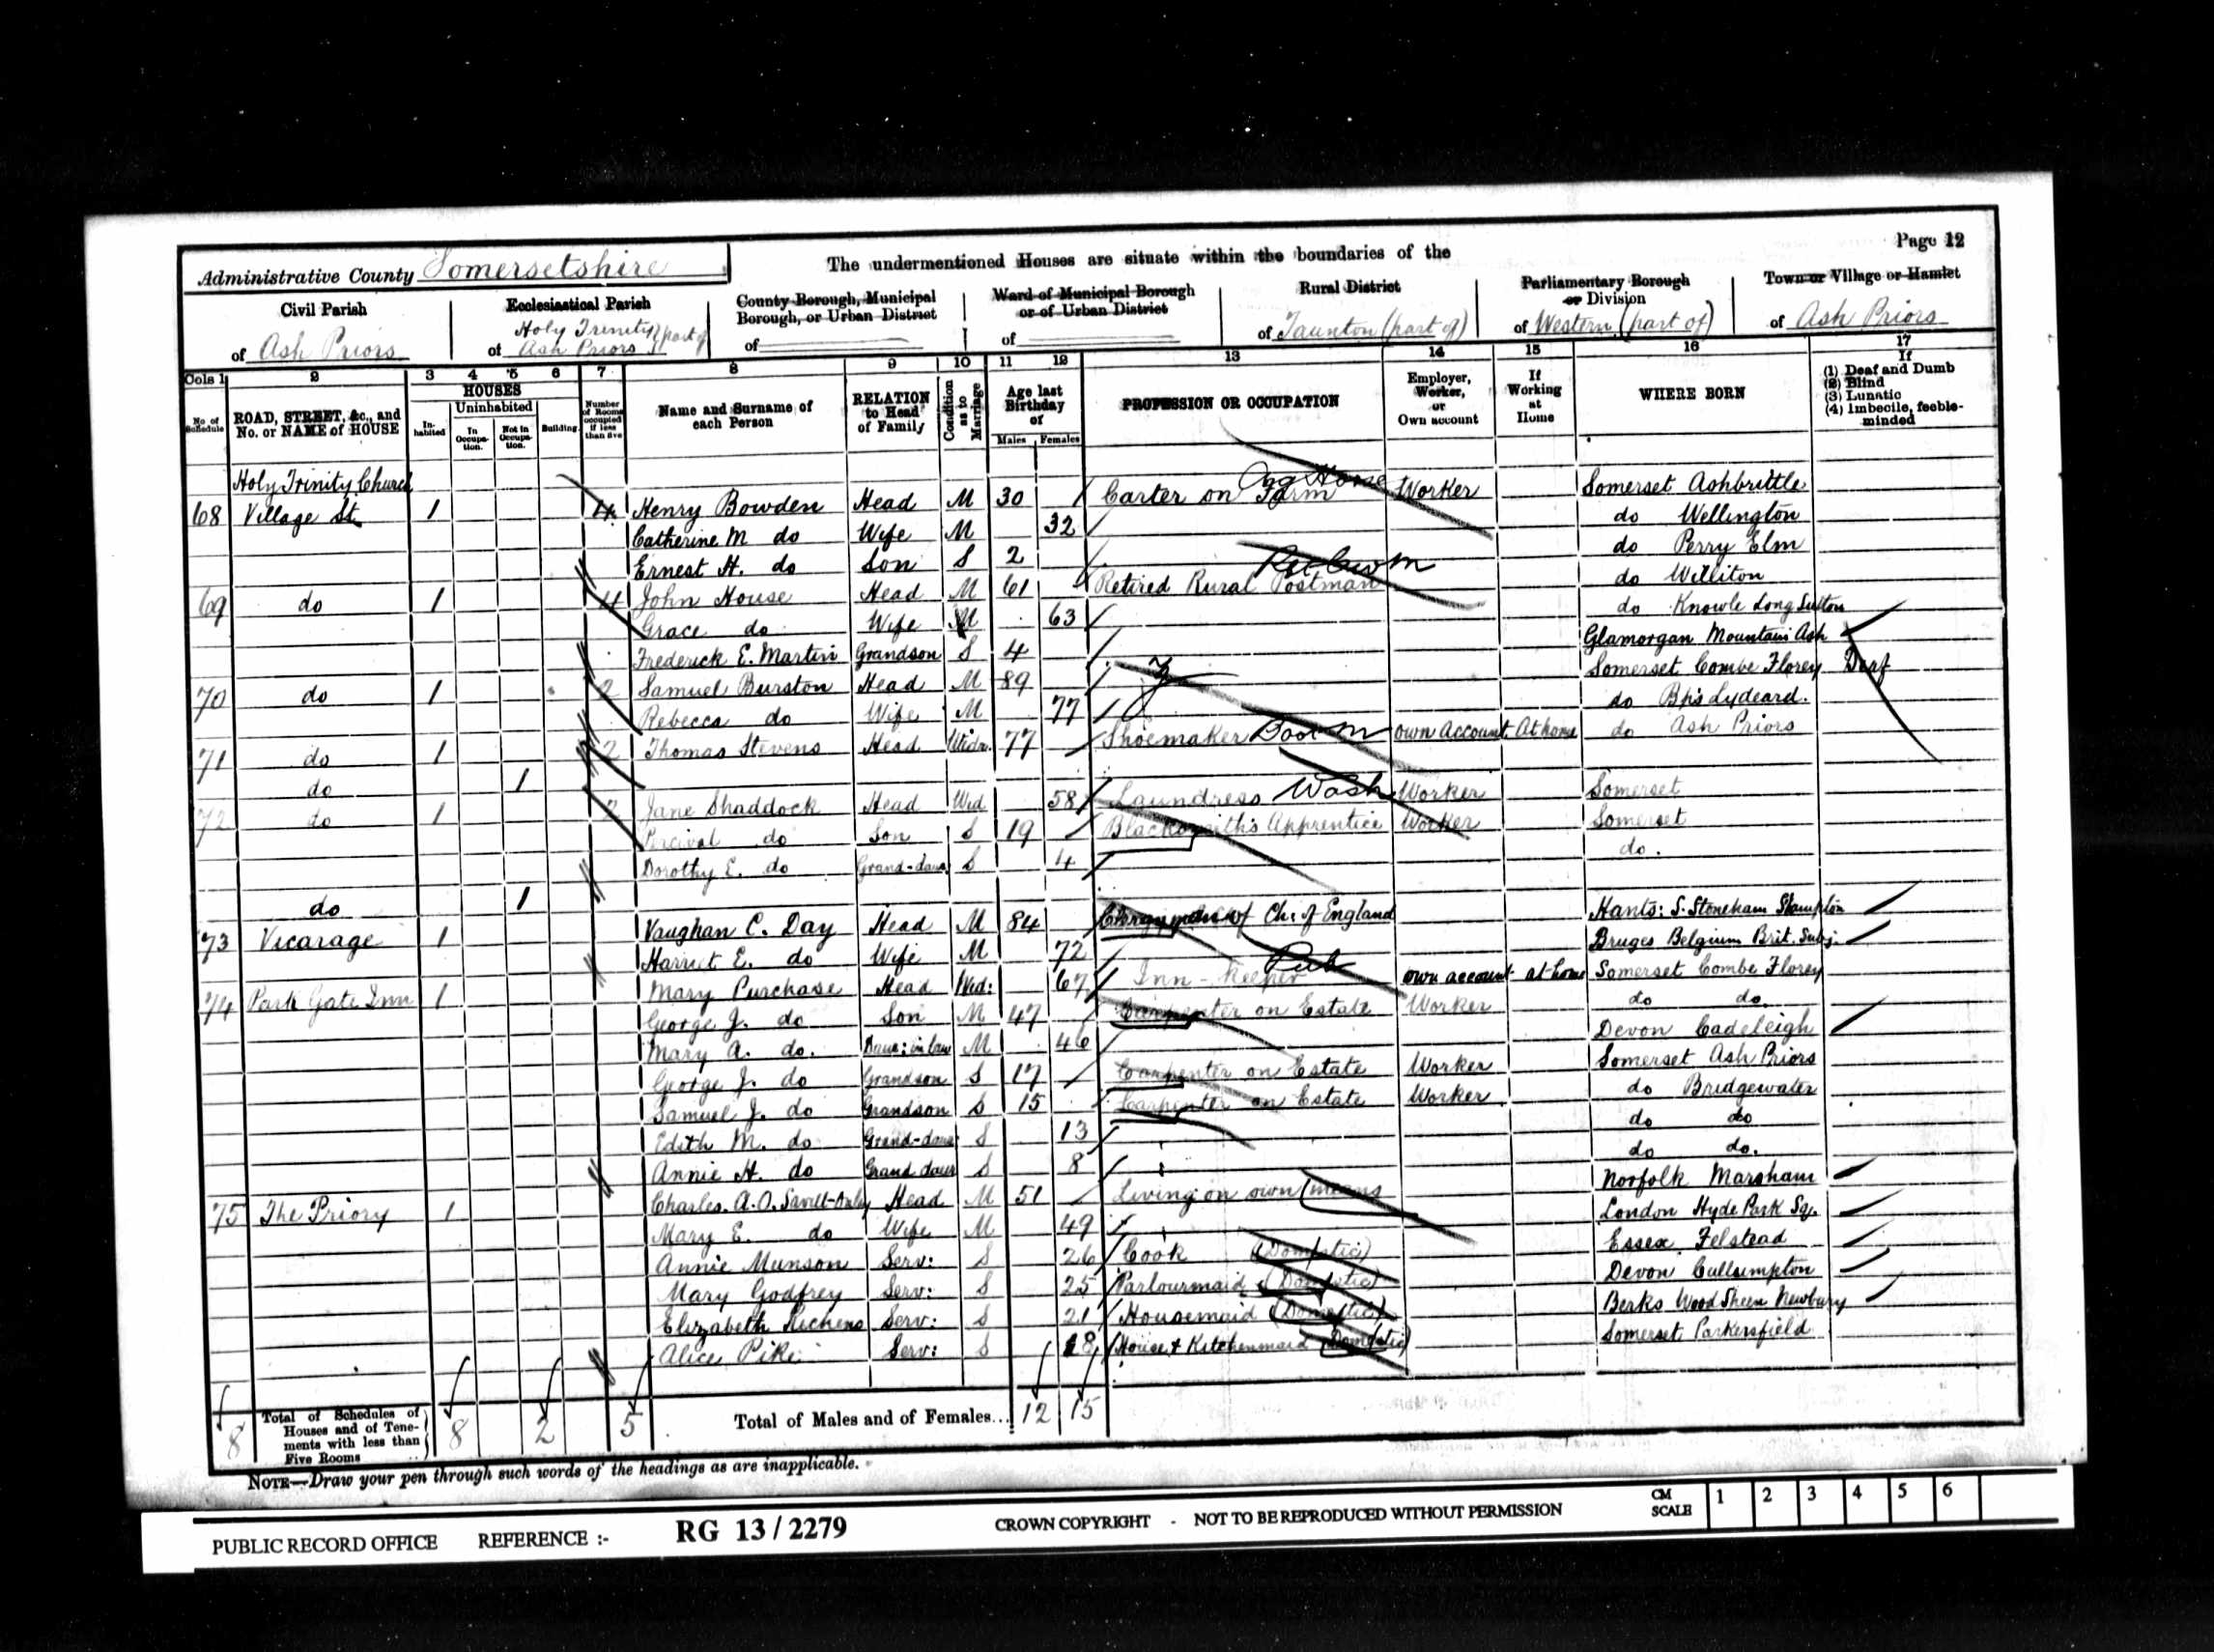 Page 12
The undermentioned Houses are situate within the boundaries of the
Administrative County Somersetshire
Civil Parish
of Ash Priors
Ecclesiastical Parish
of Holy Trinity Ash Priors (part of)
County Borough, Municipal Borough, or Urban District
of
Ward of Municipal Borough or of Urban District
of
Rural District
of Taunton (part of)
Parliamentary Borough or Division
of Western (part of)
Town or Village or Hamlet
of Ash Priors
Cols 1 2 3 4 5 6 7 8 9 10 11 12 13 14 15 16 17
No of Schedule
ROAD, STREET, &c., and No. or NAME of HOUSE
HOUSES
Inhabited
Uninhabited
In Occupation.
Not in Occupation.
Building.
Number of Rooms occupied if less than five
Name and Surname of each Person
RELATION to Head of Family
Condition as to Marriage
Age last Birthday of
Males Females
PROFESSION OR OCCUPATION
Employer, Worker, or Own account
If Working at Home
WHERE BORN
If
(1) Deaf and Dumb
(2) Blind
(3) Lunatic
(4) Imbecile, feeble-minded
Holy Trinity Church
68 Village St. 1 4 Henry Bowden Head M 30 Carter on Farm Worker Somerset Ashbrittle
Catherine M do Wife M 32 do Wellington
Ernest H. do Son S 2 do Perry Elm
69 do 1 4 John House Head M 61 Retired Rural Postman do Williton
Grace do Wife M 63 do Knowle Long Sutton
Frederick E. Martin Grandson S 4 Glamorgan Mountain Ash
70 do 1 2 Samuel Burston Head M 89 Somerset Combe Florey Deaf
Rebecca do Wife M 77 do Bps Lydeard.
71 do 1 2 Thomas Stevens Head Widr. 77 Shoemaker Boot M own account At home do Ash Priors
do 1
72 do 1 Jane Shaddock Head Wid 58 Laundress Wash Worker Somerset
Percival do Son S 19 Blacksmith's Apprentice Worker Somerset
Dorothy E. do Grand-daur S 4 do.
do 1
73 Vicarage 1 Vaughan C. Day Head M 84 Clergyman of Ch: of England Hants: S. Stoneham S'hampton
Harriet E. do Wife M 72 Bruges Belgium Brit. Subj.
74 Park Gate Inn 1 Mary Purchase Head Wid: 67 Inn-Keeper Pub own account at home Somerset Combe Florey
George J. do Son M 47 Carpenter on Estate Worker do do
Mary A. do. Daur: in law M 46 Devon Cadeleigh
George J. do Grandson S 17 Carpenter on Estate Worker Somerset Ash Priors
Samuel J. do Grandson S 15 Carpenter on Estate Worker do Bridgewater
Edith M. do Grand-daur S 13 do do
Annie H. do Grand daur S 8 do do.
75 The Priory 1 Charles. A. O. Head M 51 Living on own means Norfolk Marsham
Mary E. do Wife M 49 London Hyde Park Sq.
Annie Munson Serv: S 26 Cook (Domestic) Essex Felstead
Mary Godfrey Serv: S 25 Parlourmaid (Domestic) Devon Cullumpton
Elizabeth Serv: S 21 Housemaid (Domestic) Berks Newbury
Alice Pike Serv: S 18 House & Kitchenmaid (Domestic) Somerset Parkersfield
8 Total of Schedules of Houses and of Tenements with less than Five Rooms 8 2 5 Total of Males and of Females... 12 15
NOTE—Draw your pen through such words of the headings as are inapplicable.
PUBLIC RECORD OFFICE REFERENCE :- RG 13/2279 CROWN COPYRIGHT - NOT TO BE REPRODUCED WITHOUT PERMISSION CM SCALE 1 2 3 4 5 6